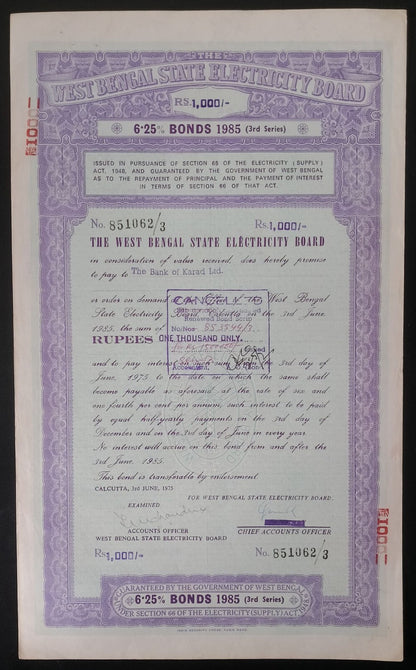 THE
WEST BENGAL STATE ELECTRICITY BOARD
RS. 1,000/-
6·25% BONDS 1985 (3rd Series)
ISSUED IN PURSUANCE OF SECTION 65 OF THE ELECTRICITY (SUPPLY)
ACT, 1948, AND GUARANTEED BY THE GOVERNMENT OF WEST BENGAL
AS TO THE REPAYMENT OF PRINCIPAL AND THE PAYMENT OF INTEREST
IN TERMS OF SECTION 66 OF THAT ACT.
No. 851062/3 Rs. 1,000/-
THE WEST BENGAL STATE ELECTRICITY BOARD
in consideration of value received, does hereby promise
to pay to The Bank of Karad Ltd.
or order on demand West Bengal
State Electricity Board, Calcutta on the 3rd June,
1985, the sum of
CANCELLED
Renewed Bond Scrip
RUPEES ONE THOUSAND ONLY.
and to pay interest such sum from the 3rd day of
June, 1975 to the date on which the same shall
become payable as aforesaid at the rate of six and
one fourth per cent per annum, such interest to be paid
by equal half-yearly payments on the 3rd day of
December and on the 3rd day of June in every year.
No interest will accrue on this bond from and after the
3rd June, 1985.
This bond is transferable by endorsement.
CALCUTTA, 3rd JUNE, 1975
FOR WEST BENGAL STATE ELECTRICITY BOARD.
EXAMINED
ACCOUNTS OFFICER
WEST BENGAL STATE ELECTRICITY BOARD
CHIEF ACCOUNTS OFFICER
Rs. 1,000/- No. 851062/3
GUARANTEED BY THE GOVERNMENT OF WEST BENGAL
6·25% BONDS 1985 (3rd Series)
UNDER SECTION 66 OF THE ELECTRICITY (SUPPLY) ACT, 1948
INDIA SECURITY PRESS, NASIK ROAD.